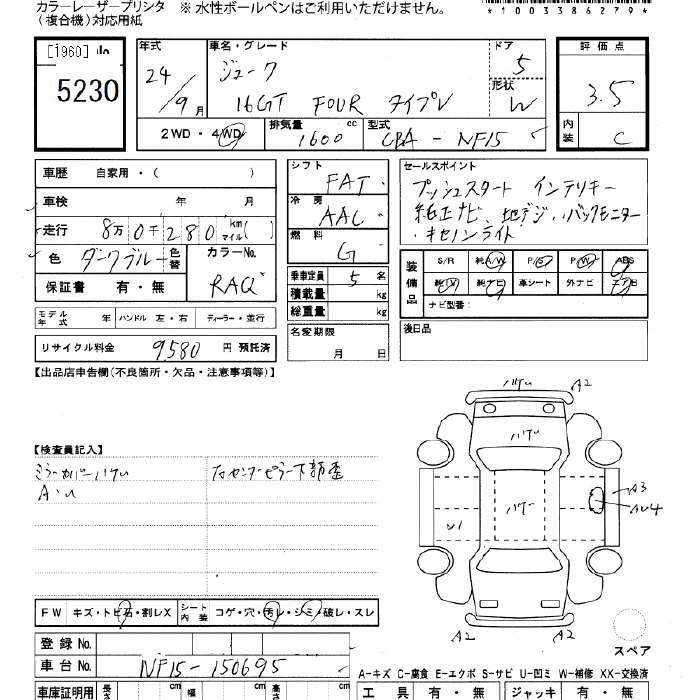 カラーレーザープリンタ ※ 水性ボールペンはご利用いただけません。
(複合機)対応用紙
*1003386279*
[1960]
5230
年式 24/9月
車名・グレード ジューク
16GT FOUR タイプV
ドア 5
形状 W
評価点 3.5
内装 C
2WD・4WD
排気量 1600 cc
型式 CBA - NF15
車歴 自家用・( )
車検 年 月
走行 8万0千280 km マイル( )
色 ダークブルー 色替
カラーNo. RAQ
保証書 有・無
シフト FAT
冷房 AAC
燃料 G
乗車定員 5 名
積載量 kg
総重量 kg
セールスポイント
プッシュスタート インテリキー
純正ナビ、地デジ、バックモニター
・キセノンライト
装備品 S/R 純A/W P/S P/W ABS
純TV 純ナビ 革シート 外ナビ エアB
ナビ型番:
モデル年式 年 ハンドル 左・右 ディーラー・並行
名変期限 月 日
後日品
リサイクル料金 9,580 円 預託済
【出品店申告欄(不良箇所・欠品・注意事項等)】
【検査員記入】
ミラーカバーハゲU
A・U
センターピラー下部歪
ハゲU A2
ハゲU
ハゲ
U1
A3
AU4
A2 A2
スペア
FW キズ・トビ石・割レX シート内装 コゲ・穴・汚レ・シミ・破レ・スレ
登録No.
車台No. NF15-150695
A-キズ C-腐食 E-エクボ S-サビ U-凹ミ W-補修 XX-交換済
車庫証明用 長さ cm 幅 cm 高さ cm
工具 有・無 ジャッキ 有・無